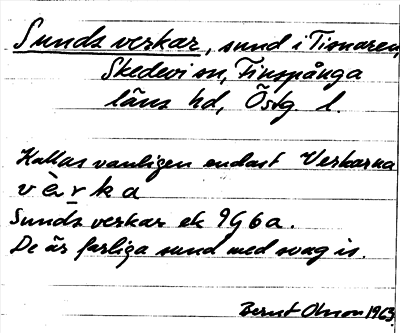 Sunds verkar, sund i Tisnaren,
Skedevi sn, Finspånga
läns hd, Östg. l.
Kallas vanligen endast Verkarna
v è r k a
Sunds verkar ek 9G6a.
De är farliga sund med svag is.
Bernt Olsson 1963